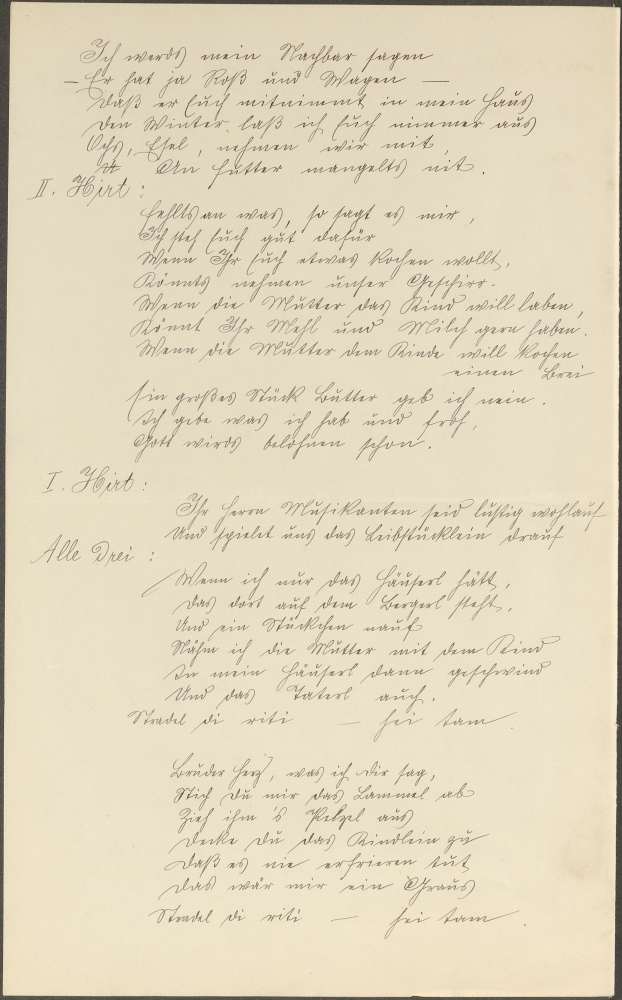 Ich werds mein Nachbar sagen
– Er hat ja Roß und Wagen –
Daß er Euch mitnimmt in mein Haus
Den Winter laß ich Euch nimmer aus
Ochs, Esel, nehmen wir mit,
An Futter mangelts nit.
II. Hirt:
Fehlts an was, so sagt es mir,
Ich steh Euch gut dafür
Wenn Ihr Euch etwas kochen wollt,
Könnts nehmen unser Geschirr.
Wenn die Mutter das Kind will laben,
Könnt Ihr Mehl und Milch gern haben.
Wenn die Mutter dem Kinde will kochen
einen Brei
Ein großes Stück Butter geb ich nein.
Ich gebe was ich hab und froh,
Gott wirds belohnen schon.
I. Hirt:
Ihr Herrn Musikanten seid lustig wohlauf
Und spielet uns das Leibstücklein drauf
Alle Drei:
Wenn ich nur das Häuserl hätt,
Das dort auf dem Bergerl steht,
Und ein Stückchen nauf
Nähm ich die Mutter mit dem Kind
In mein Häuserl dann geschwind
Und das Taterl auch.
Stradel di riti – hei tam.
Bruder Herz, was ich Dir sag,
Stich Du mir das Lammel ab
Zieh ihm 's Pelzel aus
Decke Du das Kindlein zu
Daß es nie erfrieren tut
Das wär mir ein Graus
Stradel di riti – hei tam.